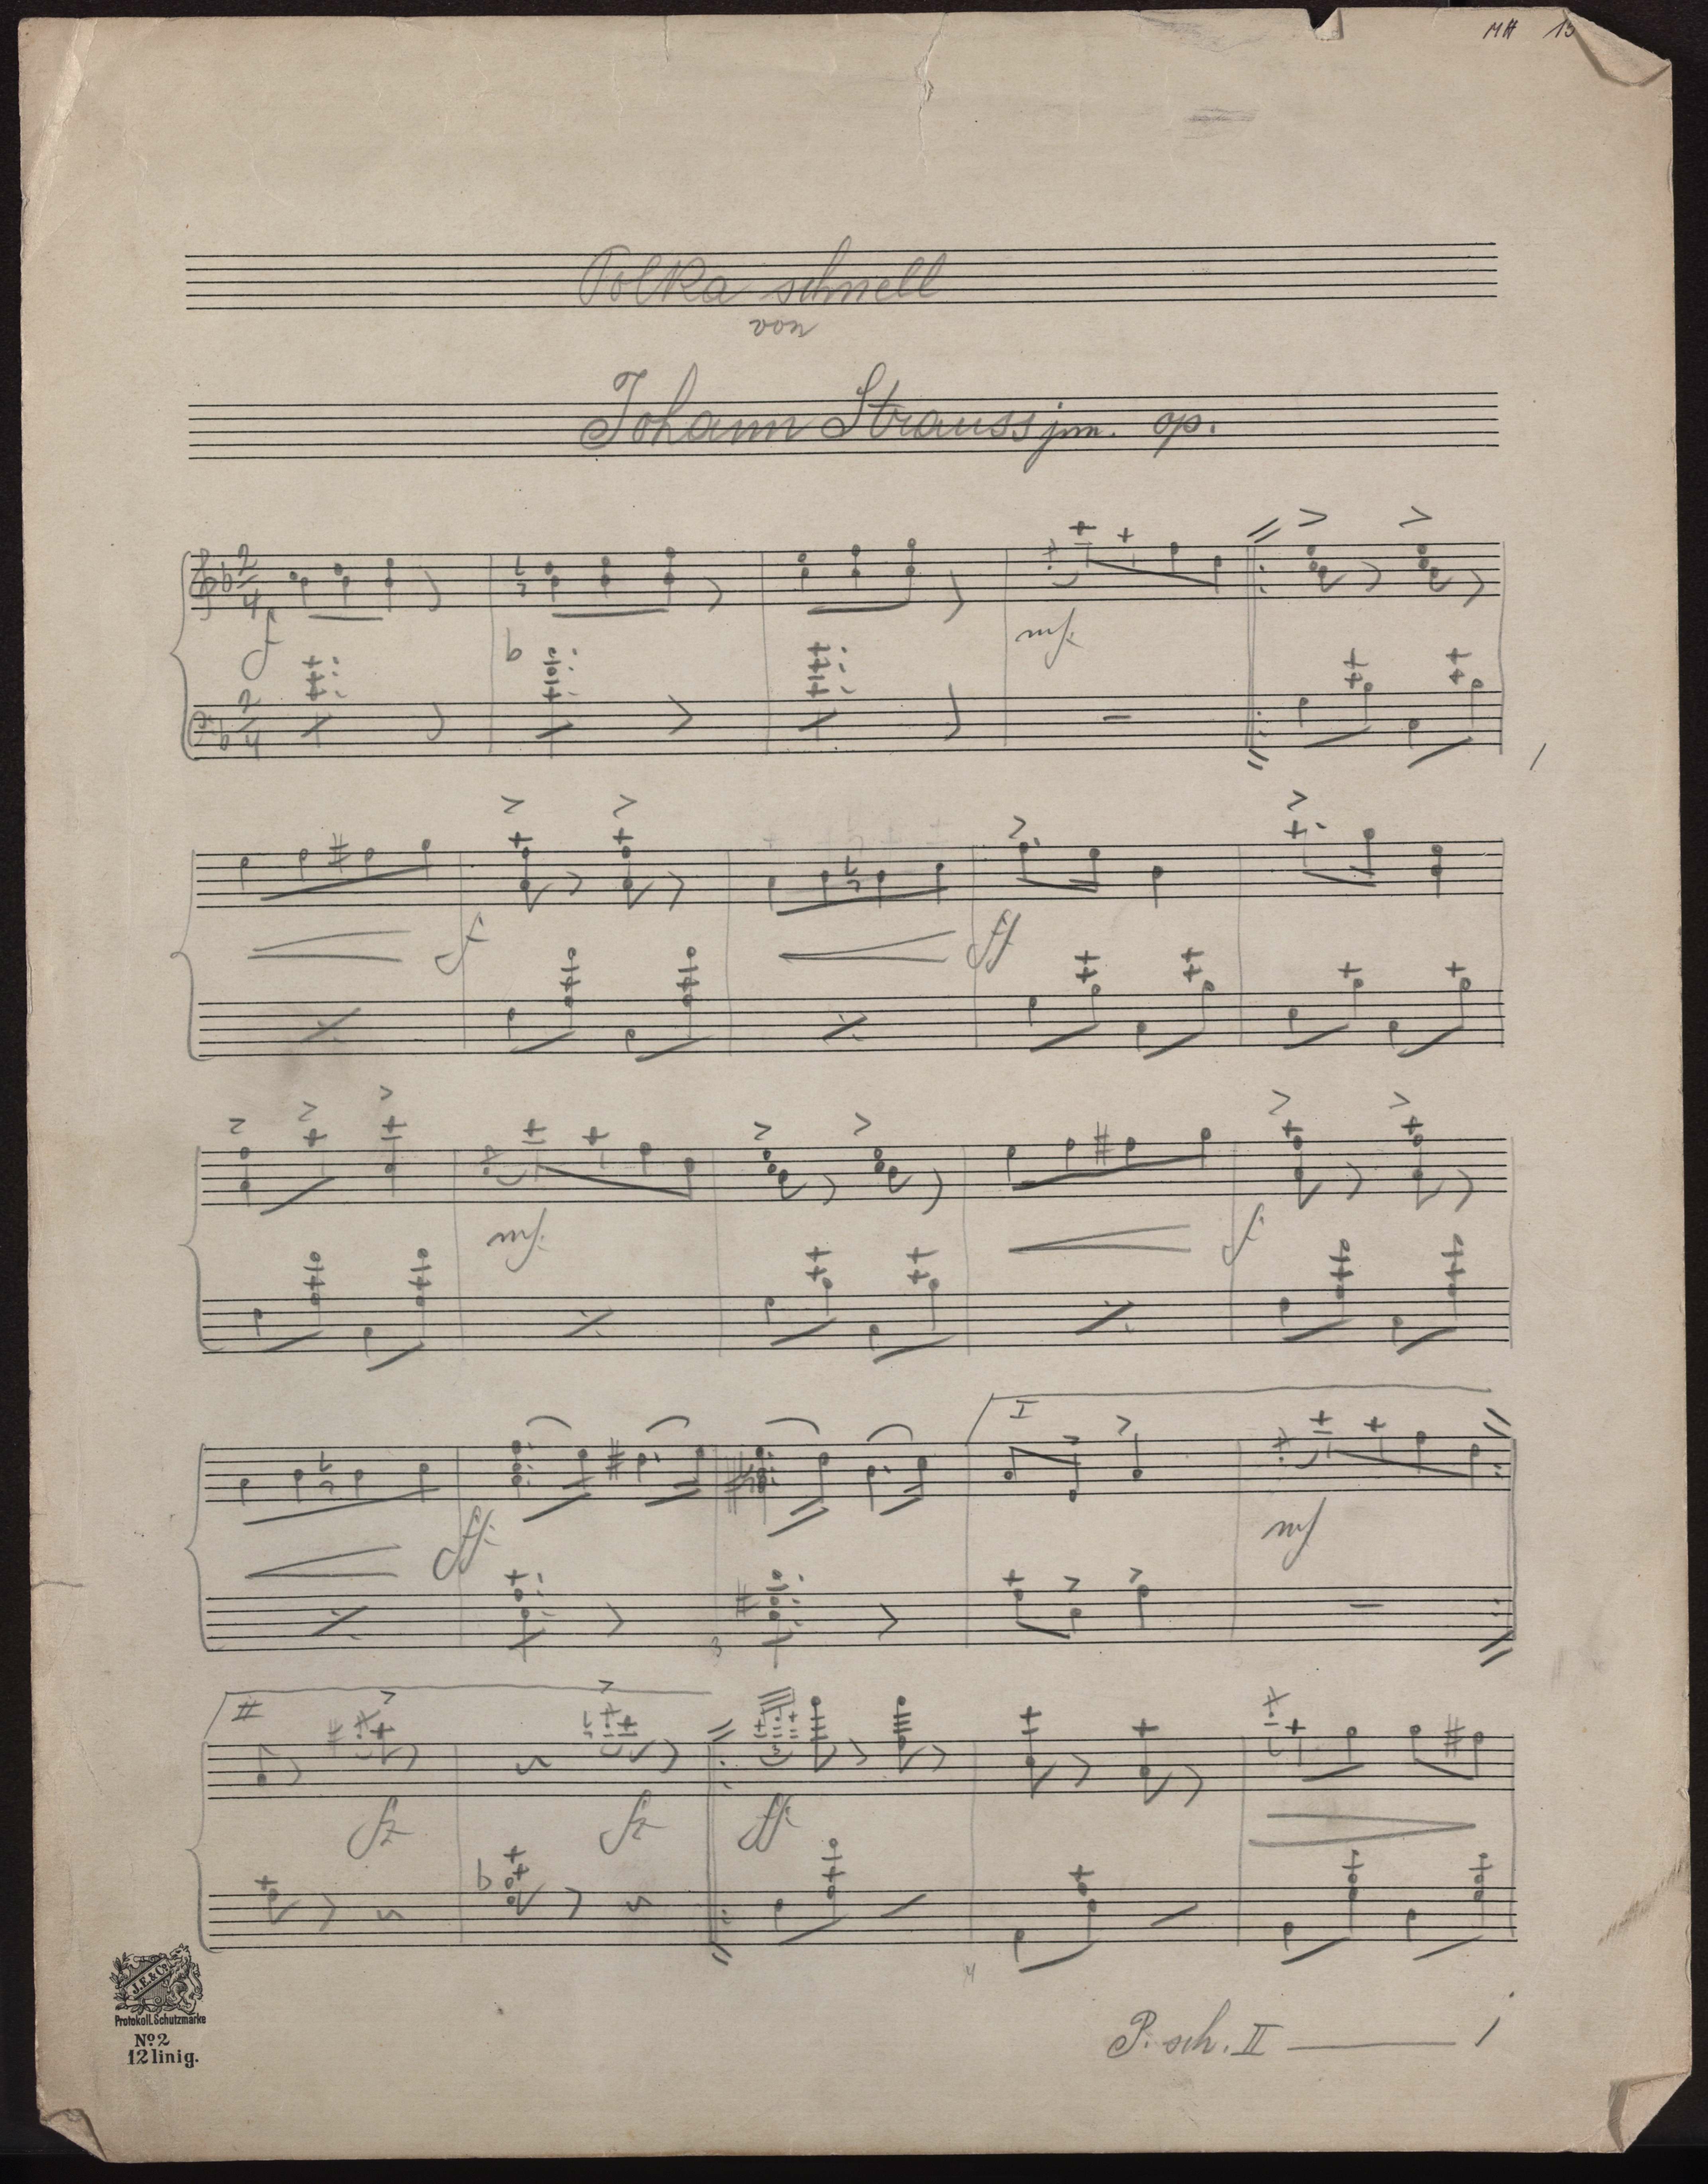 MH 13
Polka schnell
von
Johann Strauss jun. op.
2 4
f
mf.
2 4
f
ff
mf.
f
I
ff.
mf
3
II
fz
fz
ff.
4
J.E. & Co.
Protokoll. Schutzmarke
No. 2
12 linig.
P. sch. II — 1